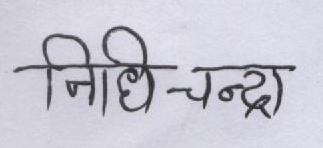 निधि चन्द्रा